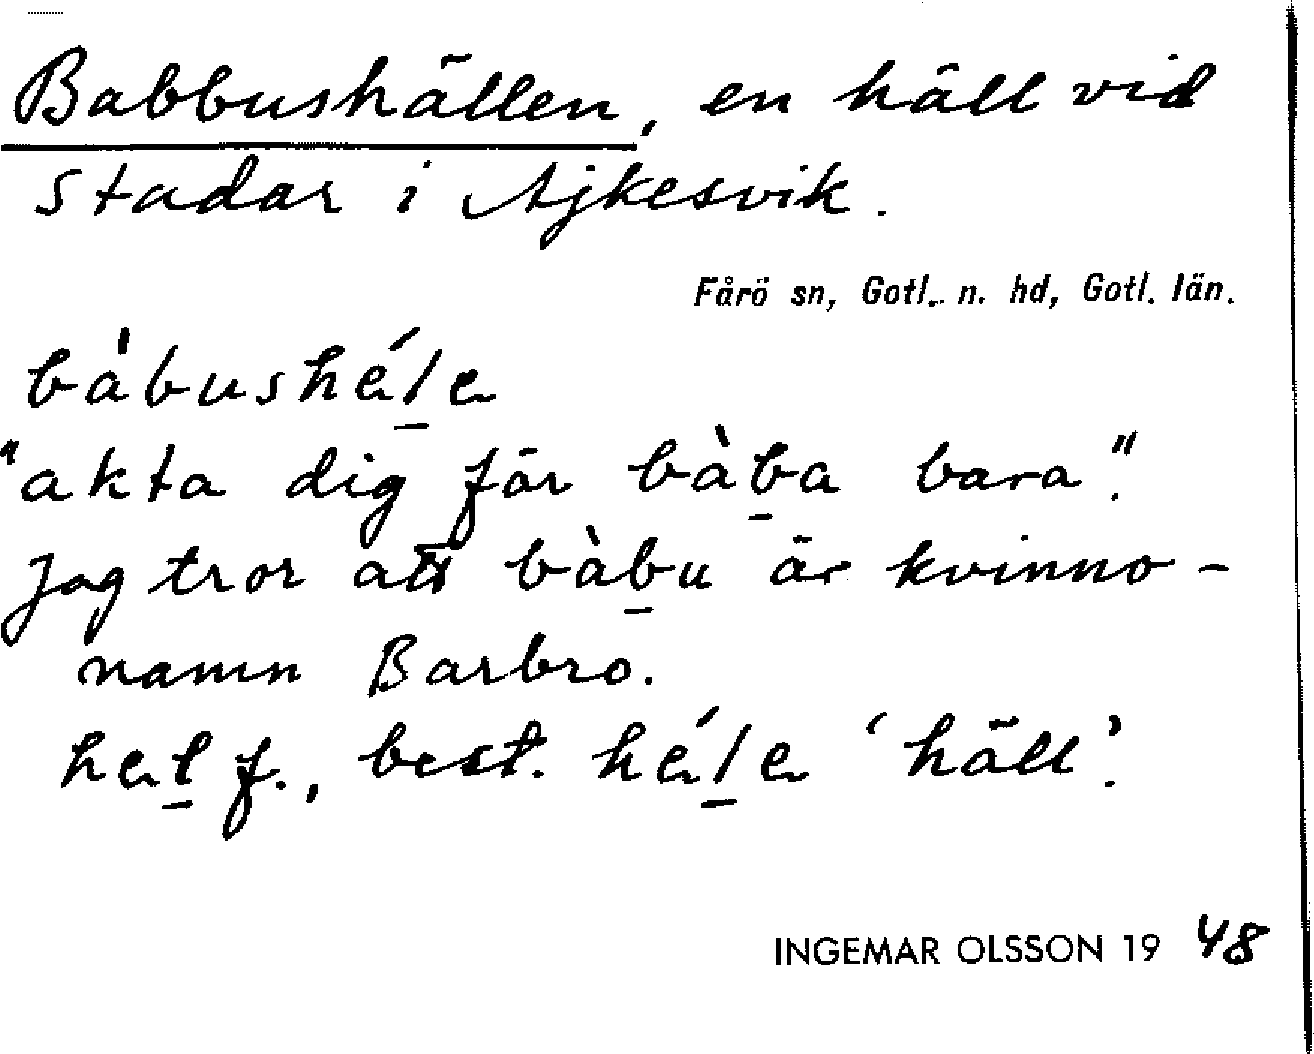 Babbushällen, en häll vid
Stadar i Ajkesvik.
Fårö sn, Gotl. n. hd, Gotl. län.
bàbushél̲e
"akta dig för bàb̲a bara".
Jag tror att bàb̲u är kvinno-
namn Barbro.
hel̲ f., best. hél̲e 'häll'.
INGEMAR OLSSON 19 48